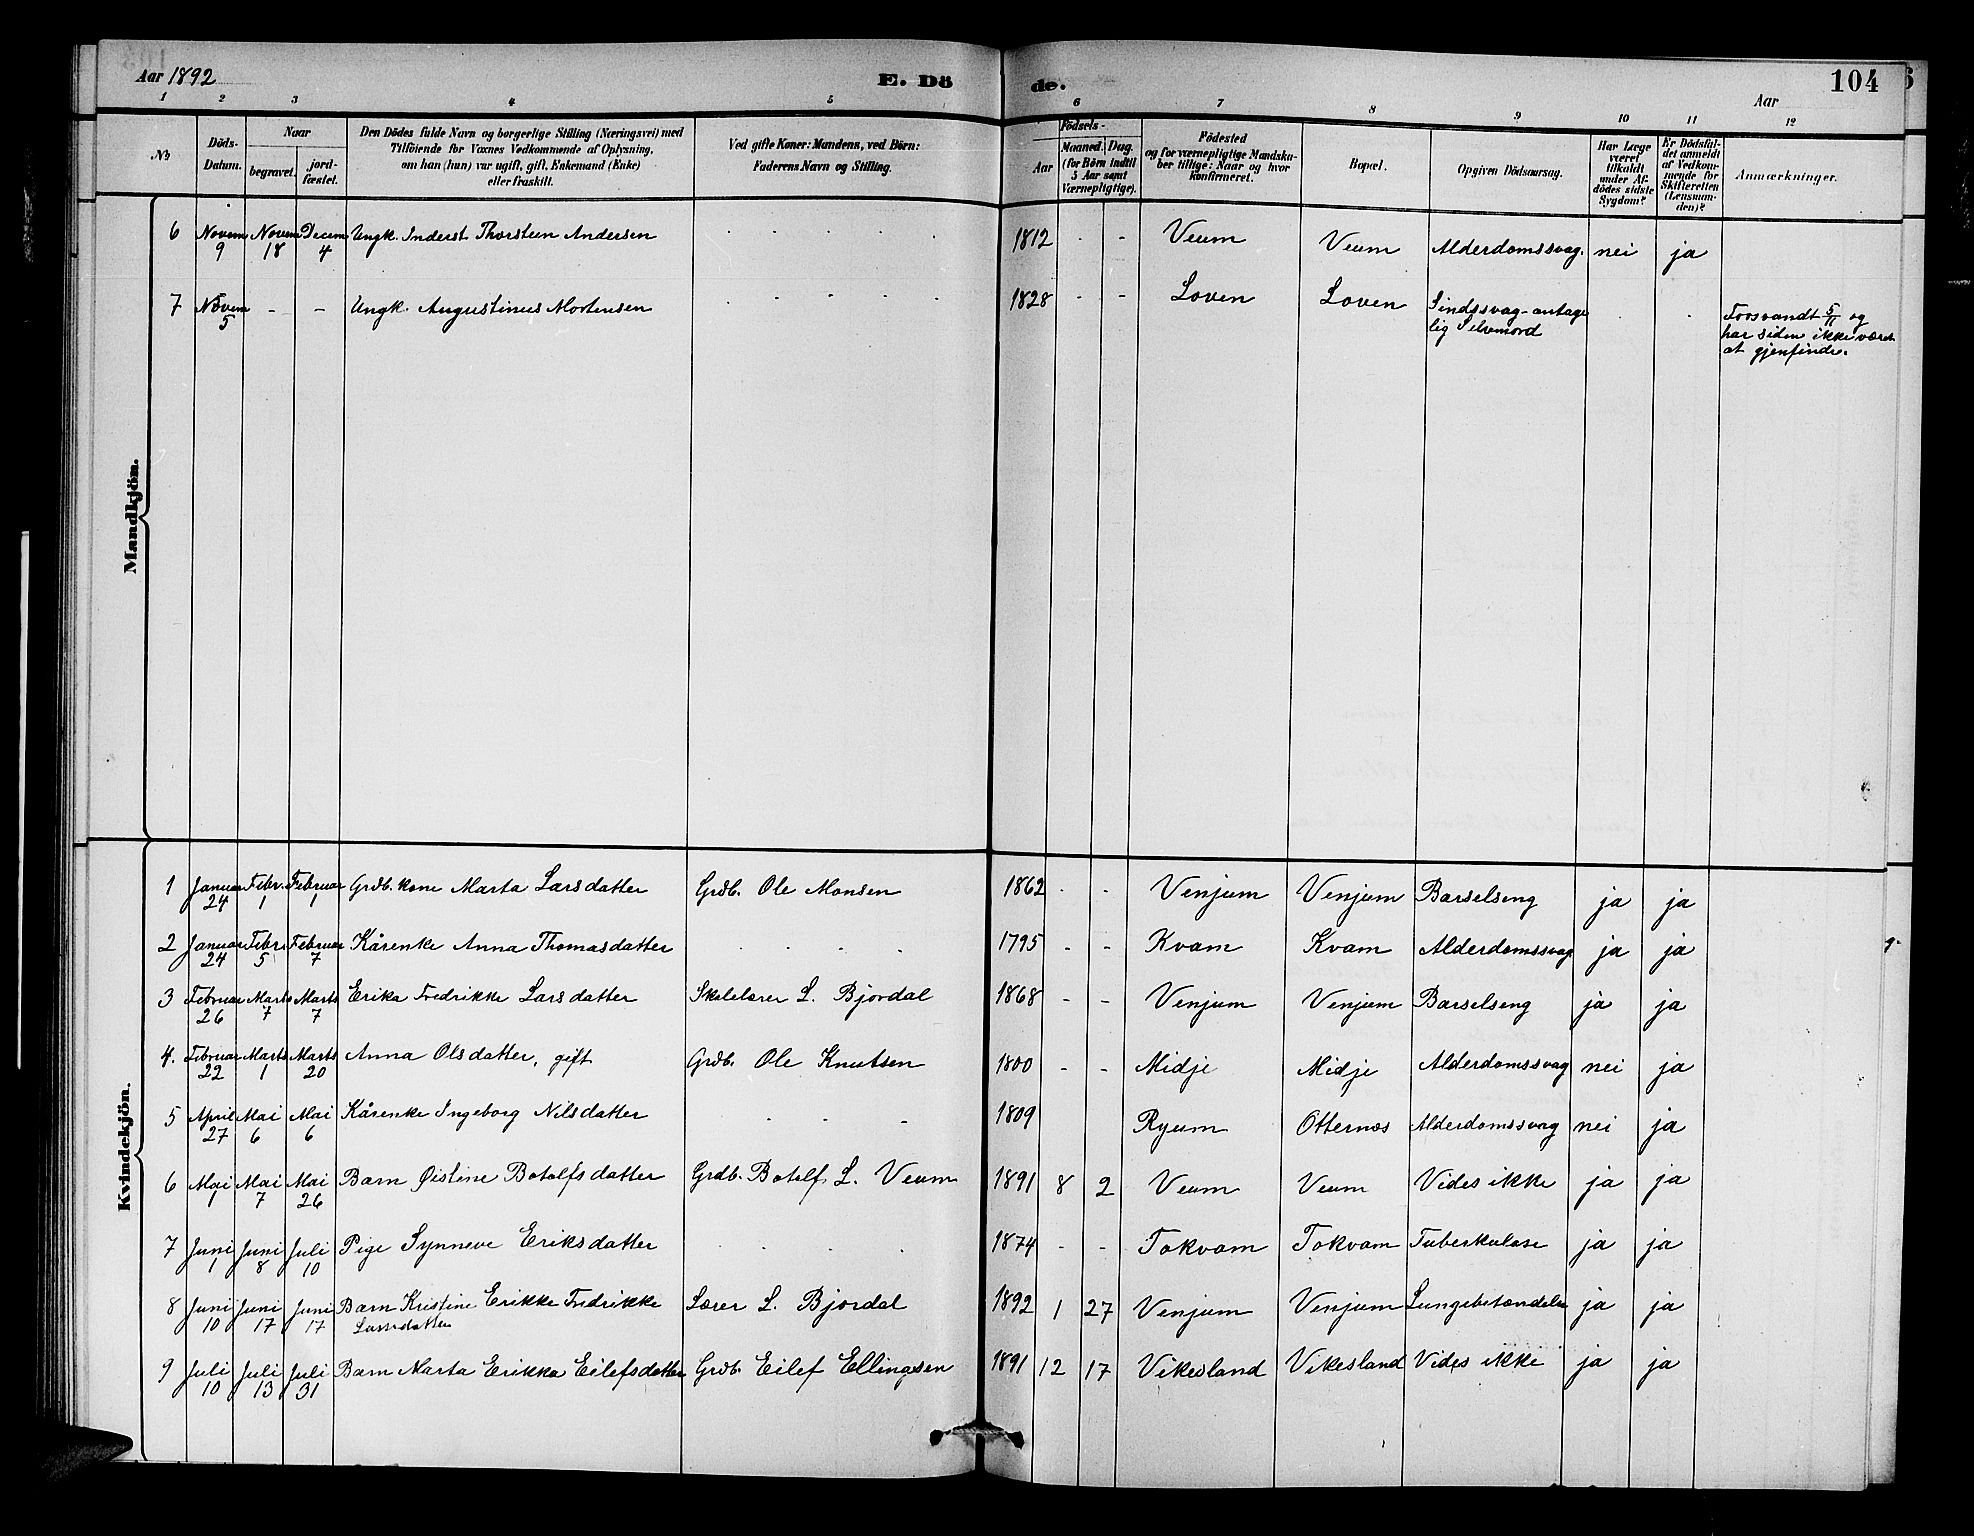 Aar 1892 E. Dö de. 104
Aar
1 2 3 4 5 6 7 8 9 10 11 12
№ Döds-Datum. Naar begravet. jordfæstet. Den Dödes fulde Navn og borgerlige Stilling (Næringsvei) med Tilföiende for Voxnes Vedkommende af Oplysning, om han (hun) var ugift, gift, Enkemand (Enke) eller fraskilt. Ved gifte Koner: Mandens, ved Börn: Faderens Navn og Stilling. Födsels- Aar Maaned. Dag. (for Börn indtil 5 Aar samt Værnepligtige). Födested og for værnepligtige Mandskaber tillige: Naar og hvor konfirmeret. Bopæl. Opgiven Dödsaarsag. Har Læge været tilkaldt under Afdödes sidste Sygdom? Er Dödsfaldet anmeldt af Vedkommende for Skifteretten (Lensmanden)? Anmærkninger.
Mandkjön.
6 Novem 9 Novem 18 Decem 4 Ungk. Inderst Thorsteen Andersen 1812 - - Veum Veum Alderdomssvag. nei ja
7 Novem 5 - - Ungk. Augustinus Mortensen 1828 - - Loven Loven Sindssvag - antagelig Selvmord Forsvandt 5/11 og har siden ikke været at gjenfinde.
Kvindekjön.
1 Januar 24 Febr. 1 Februar 1 Grdb. kone Marta Larsdatter Grdb. Ole Monsen 1862 - - Venjum Venjum Barselseng ja ja
2 Januar 24 Febr. 5 Februar 7 Kårenke Anna Thomasdatter 1795 - - Kvam Kvam Alderdomssvag ja ja
3 Februar 26 Marts 7 Marts 7 Erika Fredrikke Larsdatter Skolelærer L. Bjordal 1868 - - Venjum Venjum Barselseng ja ja
4. Februar 22 Marts 1 Marts 20 Anna Olsdatter, gift Grdb. Ole Knutsen 1800 - - Midje Midje Alderdomssvag nei ja
5 April 27 Mai 6 Mai 6 Kårenke Ingeborg Nilsdatter 1809 Ryum Otternæs Alderdomssvag nei ja
6 Mai 1 Mai 7 Mai 26 Barn Øistine Botolfsdatter Grdb. Botolf L. Veum 1891 8 2 Veum Veum Vides ikke ja ja
7 Juni 1 Juni 8 Juli 10 Pige Synneve Eriksdatter 1874 - - Tokvam Tokvam Tuberkulose ja ja
8 Juni 10 Juni 17 Juni 17 Barn Kristine Erikke Fredrikke Larsdatter Lærer L. Bjordal 1892 1 27 Venjum Venjum Lungebetændelse ja ja
9 Juli 10 Juli 13 Juli 31 Barn Marta Erikka Eilefsdatter Grdb. Eilef Ellingsen 1891 12 17 Vikesland Vikesland Vides ikke ja ja